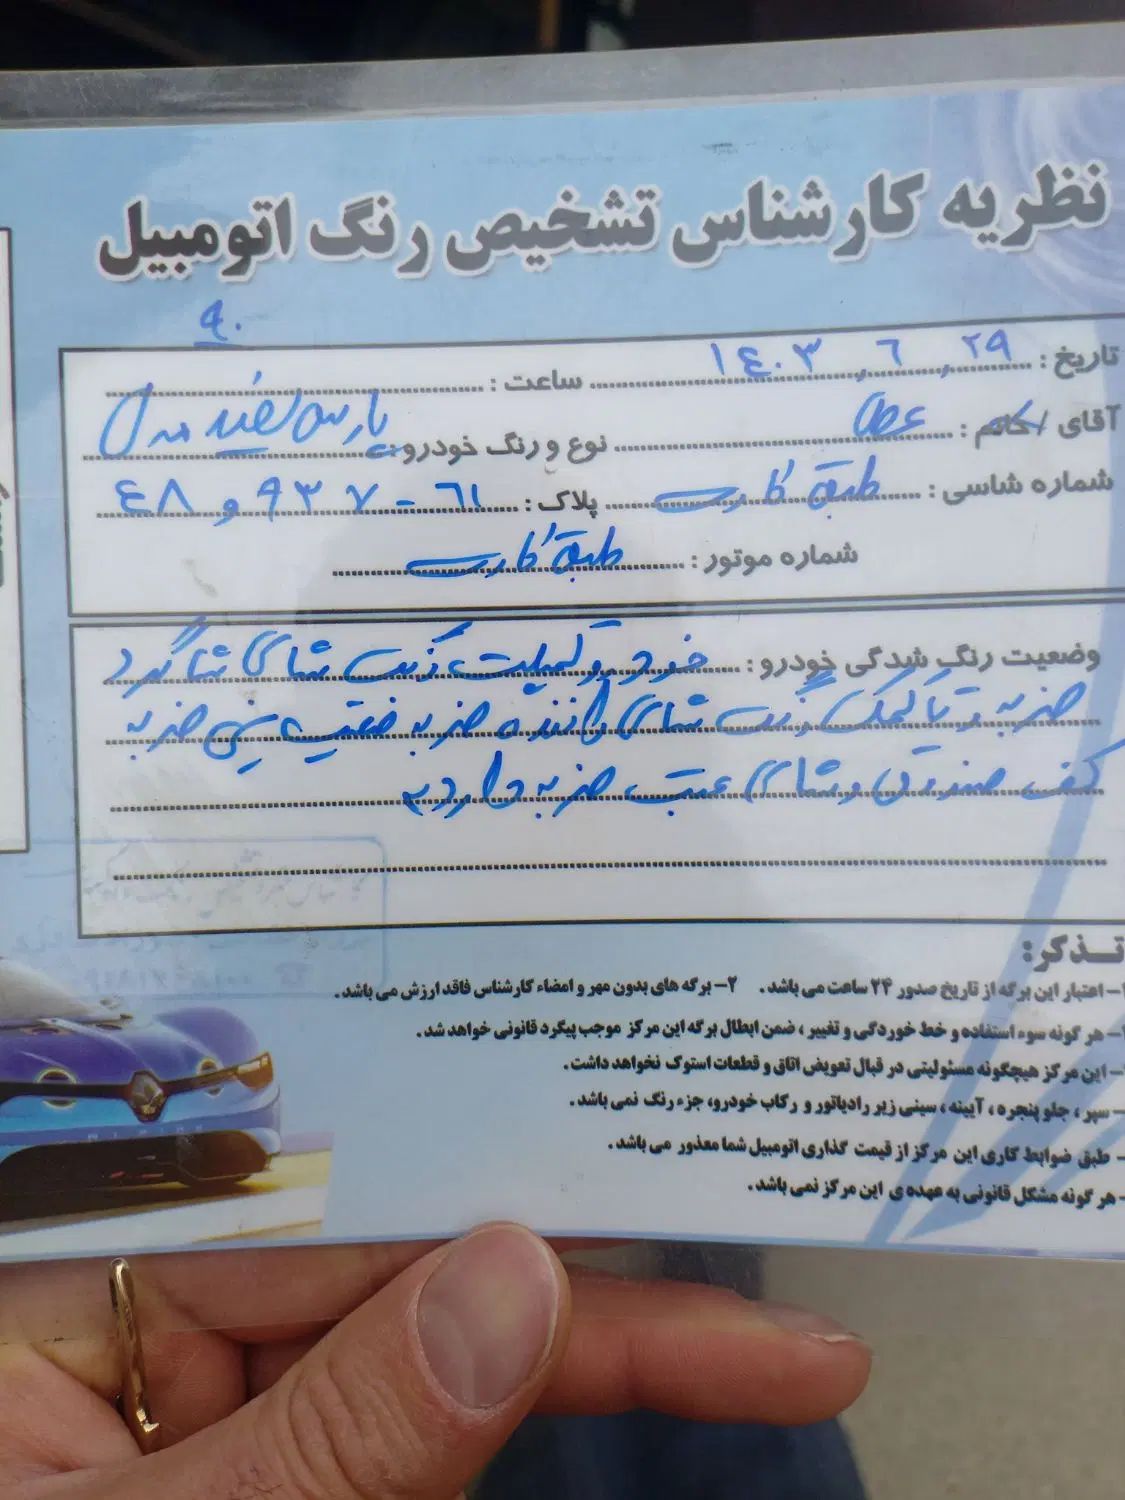 نظریه کارشناس تشخیص رنگ اتومبیل
۹۰
تاریخ : ۱۴۰۳,۶,۲۹ ساعت :
آقای / خانم : نوع و رنگ خودرو: پارس سفید مدل
شماره شاسی : طبق کارت پلاک : ۶۱ - ۷ ۹۳ و ۴۸
شماره موتور : طبق کارت
وضعیت رنگ شدگی خودرو : خودرو گلگیر عقب شاگرد
ضربه و راننده ضربه سینی ضربه
کف صندوق و عقب ضربه دارد
تـذکر:
۱- اعتبار این برگه از تاریخ صدور ۲۴ ساعت می باشد. ۲- برگه های بدون مهر و امضاء کارشناس فاقد ارزش می باشد.
- هر گونه سوء استفاده و خط خوردگی و تغییر ، ضمن ابطال برگه این مرکز موجب پیگرد قانونی خواهد شد.
- این مرکز هیچگونه مسئولیتی در قبال تعویض اتاق و قطعات استوک نخواهد داشت.
- سپر ، جلو پنجره ، آیینه ، سینی زیر رادیاتور و رکاب خودرو، جزء رنگ نمی باشد.
- طبق ضوابط کاری این مرکز از قیمت گذاری اتومبیل شما معذور می باشد.
- هر گونه مشکل قانونی به عهده ی این مرکز نمی باشد.